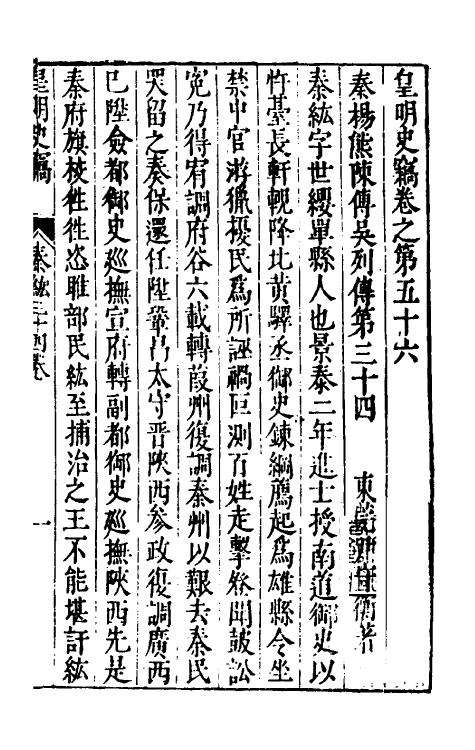 皇明史竊卷之第五十六
秦楊熊陳傳吳列傳第三十四　東莞尹守衡著
秦紘字世纓單縣人也景泰二年進士授南道御史以
忤臺長軒輗降北黃驛丞御史鍊綱薦起爲雄縣令坐
禁中官游獵擾民爲所誣禍叵測百姓走擊登聞鼓訟
寃乃得宥調府谷六載轉葭州復調秦州以艱去秦民
哭留之奏保還任陞鞏昌太守晉陝西參政復調廣西
已陞僉都御史廵撫宣府轉副都御史廵撫陝西先是
秦府旗校徃徃恣睢部民紘至捕治之王不能堪訐紘
皇明史竊
秦紘 三十四卷
一